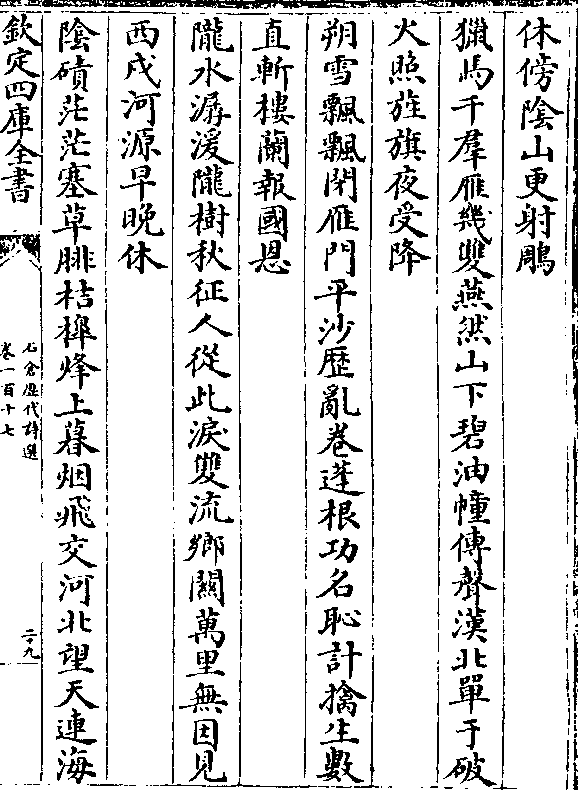 休傍陰山更射鵰
獵馬千羣雁幾雙燕然山下碧油幢傳聲漠北單于破
火照旌旗夜受降
朔雪飄飄閉雁門平沙歴亂巻蓬根功名恥計擒生數
直斬樓蘭報國恩
隴水潺湲隴樹秋征人從此淚雙流鄉關萬里無因見
西戍河源早晚休
陰磧茫茫塞草腓桔橰烽上暮烟飛交河北望天連海
欽定四庫全書
石倉歴代詩選
巻一百十七
二九